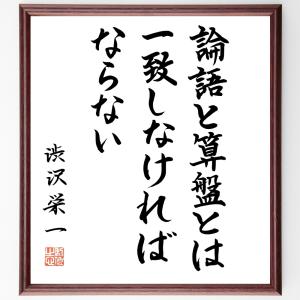 論語と算盤とは
一致しなければ
ならない
渋沢栄一